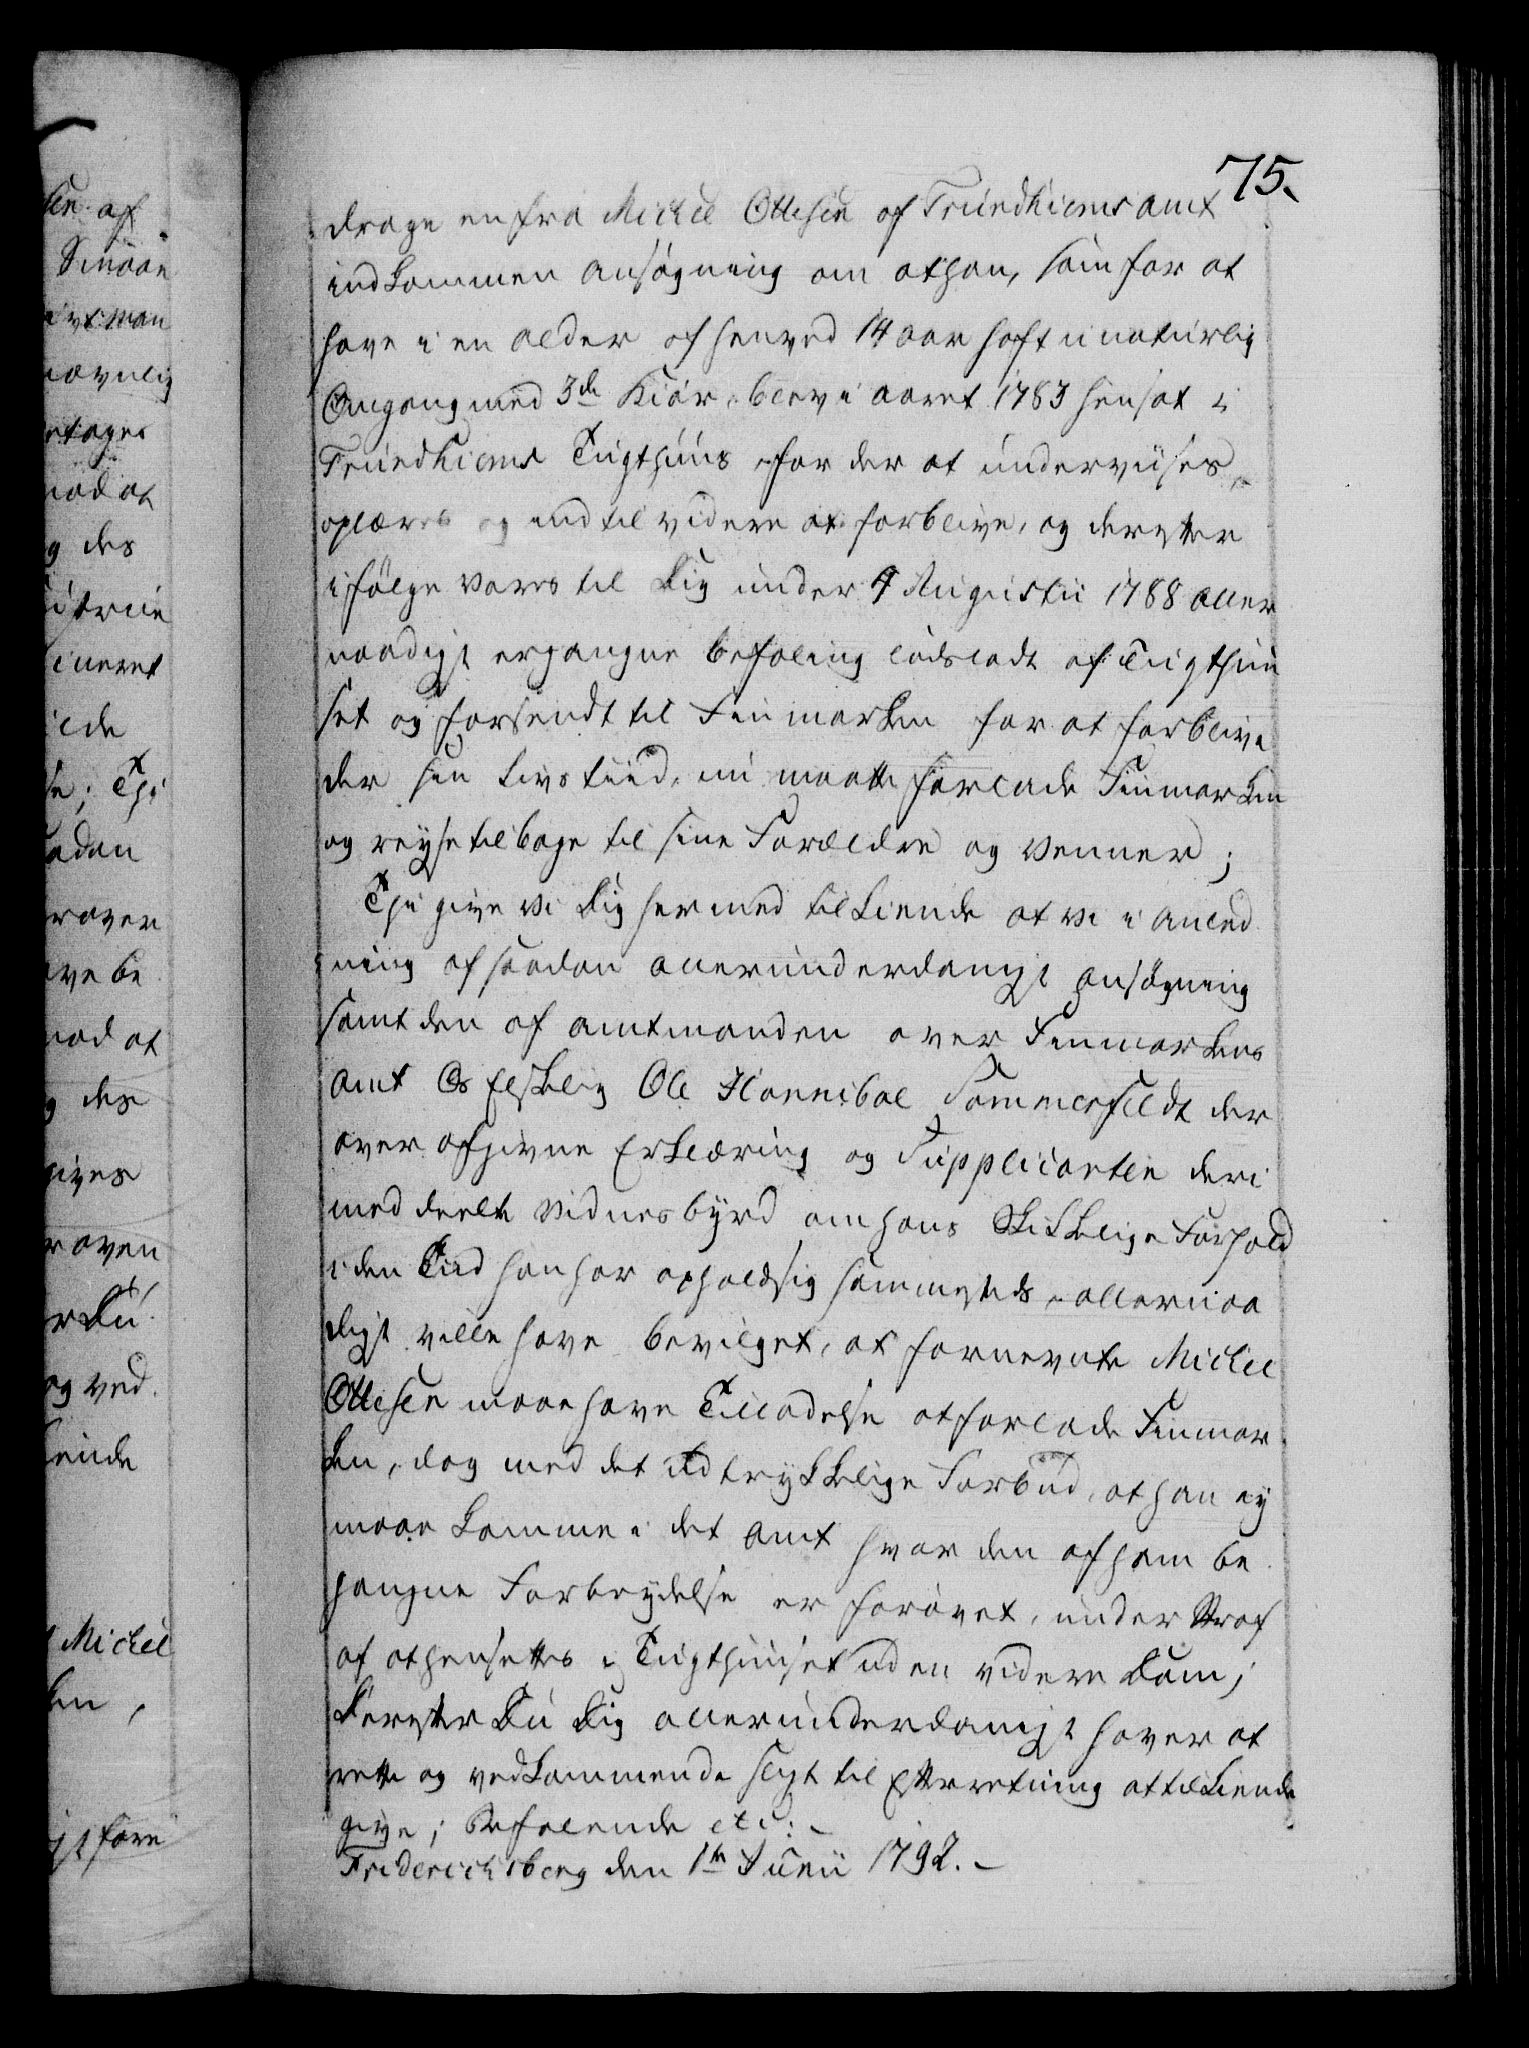 75.
drage en fra Michel Ottesen af Trundhiems amt
indkommen ansøgning om at han, som for at
have i en alder af henved 14 aar haft unaturlig
Omgang med 3de Kiør, blev i aaret 1783 hensat i
Trundhiems Tugthuus for der at underviises,
oplæres og indtil videre at forblive, og derefter
ifølge vores til Dig under 4 Augustii 1788 aller
naadigst ergangne befaling lodsladt af Tugthuu
set og forsendt til Finmarken for at forblive
der sin Livs tiid, nu maatte forlade Finmarken
og reyse tilbage til sine Forældre og venner;
Thi give vi Dig hermed tilkiende at vi i anled
ning af saadan allerunderdanigst ansøgning
samt den af amtmanden over Finmarkens
amt Os elskelig Ole Hannibal Sommerfeldt der
over afgivne Erklæring og Supplicanten deri
meddeelte vidnesbyrd om hans Skikkelige Forhold
i den Tiid han har opholdt sig sammesteds, allernaa
digst ville have bevilget, at fornevnte Michel
Ottesen maae have Tilladelse at forlade Finmar
ken, dog med det udtrykkelige Forbud, at han ey
maae komme i det amt hvor den af ham be
gangne Forbrydelse er forøvet, under Straf
af at hensettes i Tugthuuset uden videre Dom;
Derefter Du Dig allerunderdanigst haver at
rette og vedkommende sligt til Efterretning at tilkiende
give; Befalende etc:
Friderichsberg den 1te Junii 1792.